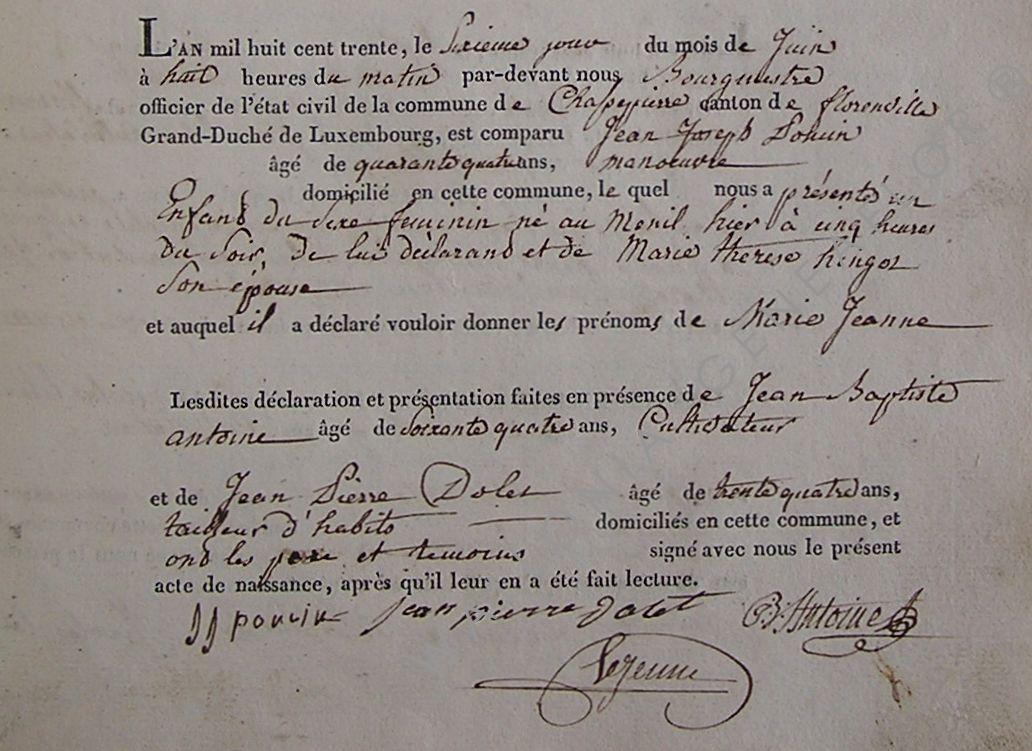 L'AN mil huit cent trente, le Sixieme jour du mois de Juin
à huit heures du matin par-devant nous Bourguestre
officier de l'état civil de la commune de Chassepierre canton de florenville
Grand-Duché de Luxembourg, est comparu Jean Joseph Poncin
âgé de quarante quatre ans, manoeuvre
domicilié en cette commune, le quel nous a présenté un
Enfant du Sexe feminin né au Menil hier à cinq heures
du Soir, de lui déclarant et de Marie therese hingot
Son épouse
et auquel il a déclaré vouloir donner les prénoms de Marie Jeanne
Lesdites déclaration et présentation faites en présence de Jean Baptiste
antoine âgé de Soixante quatre ans, Cultivateur
et de Jean Pierre Dolet âgé de trente quatre ans,
tailleur d'habits domiciliés en cette commune, et
ont les pere et temoins signé avec nous le présent
acte de naissance, après qu'il leur en a été fait lecture.
JJ poncin jean pierre dolet B. Antoine
Lejeune